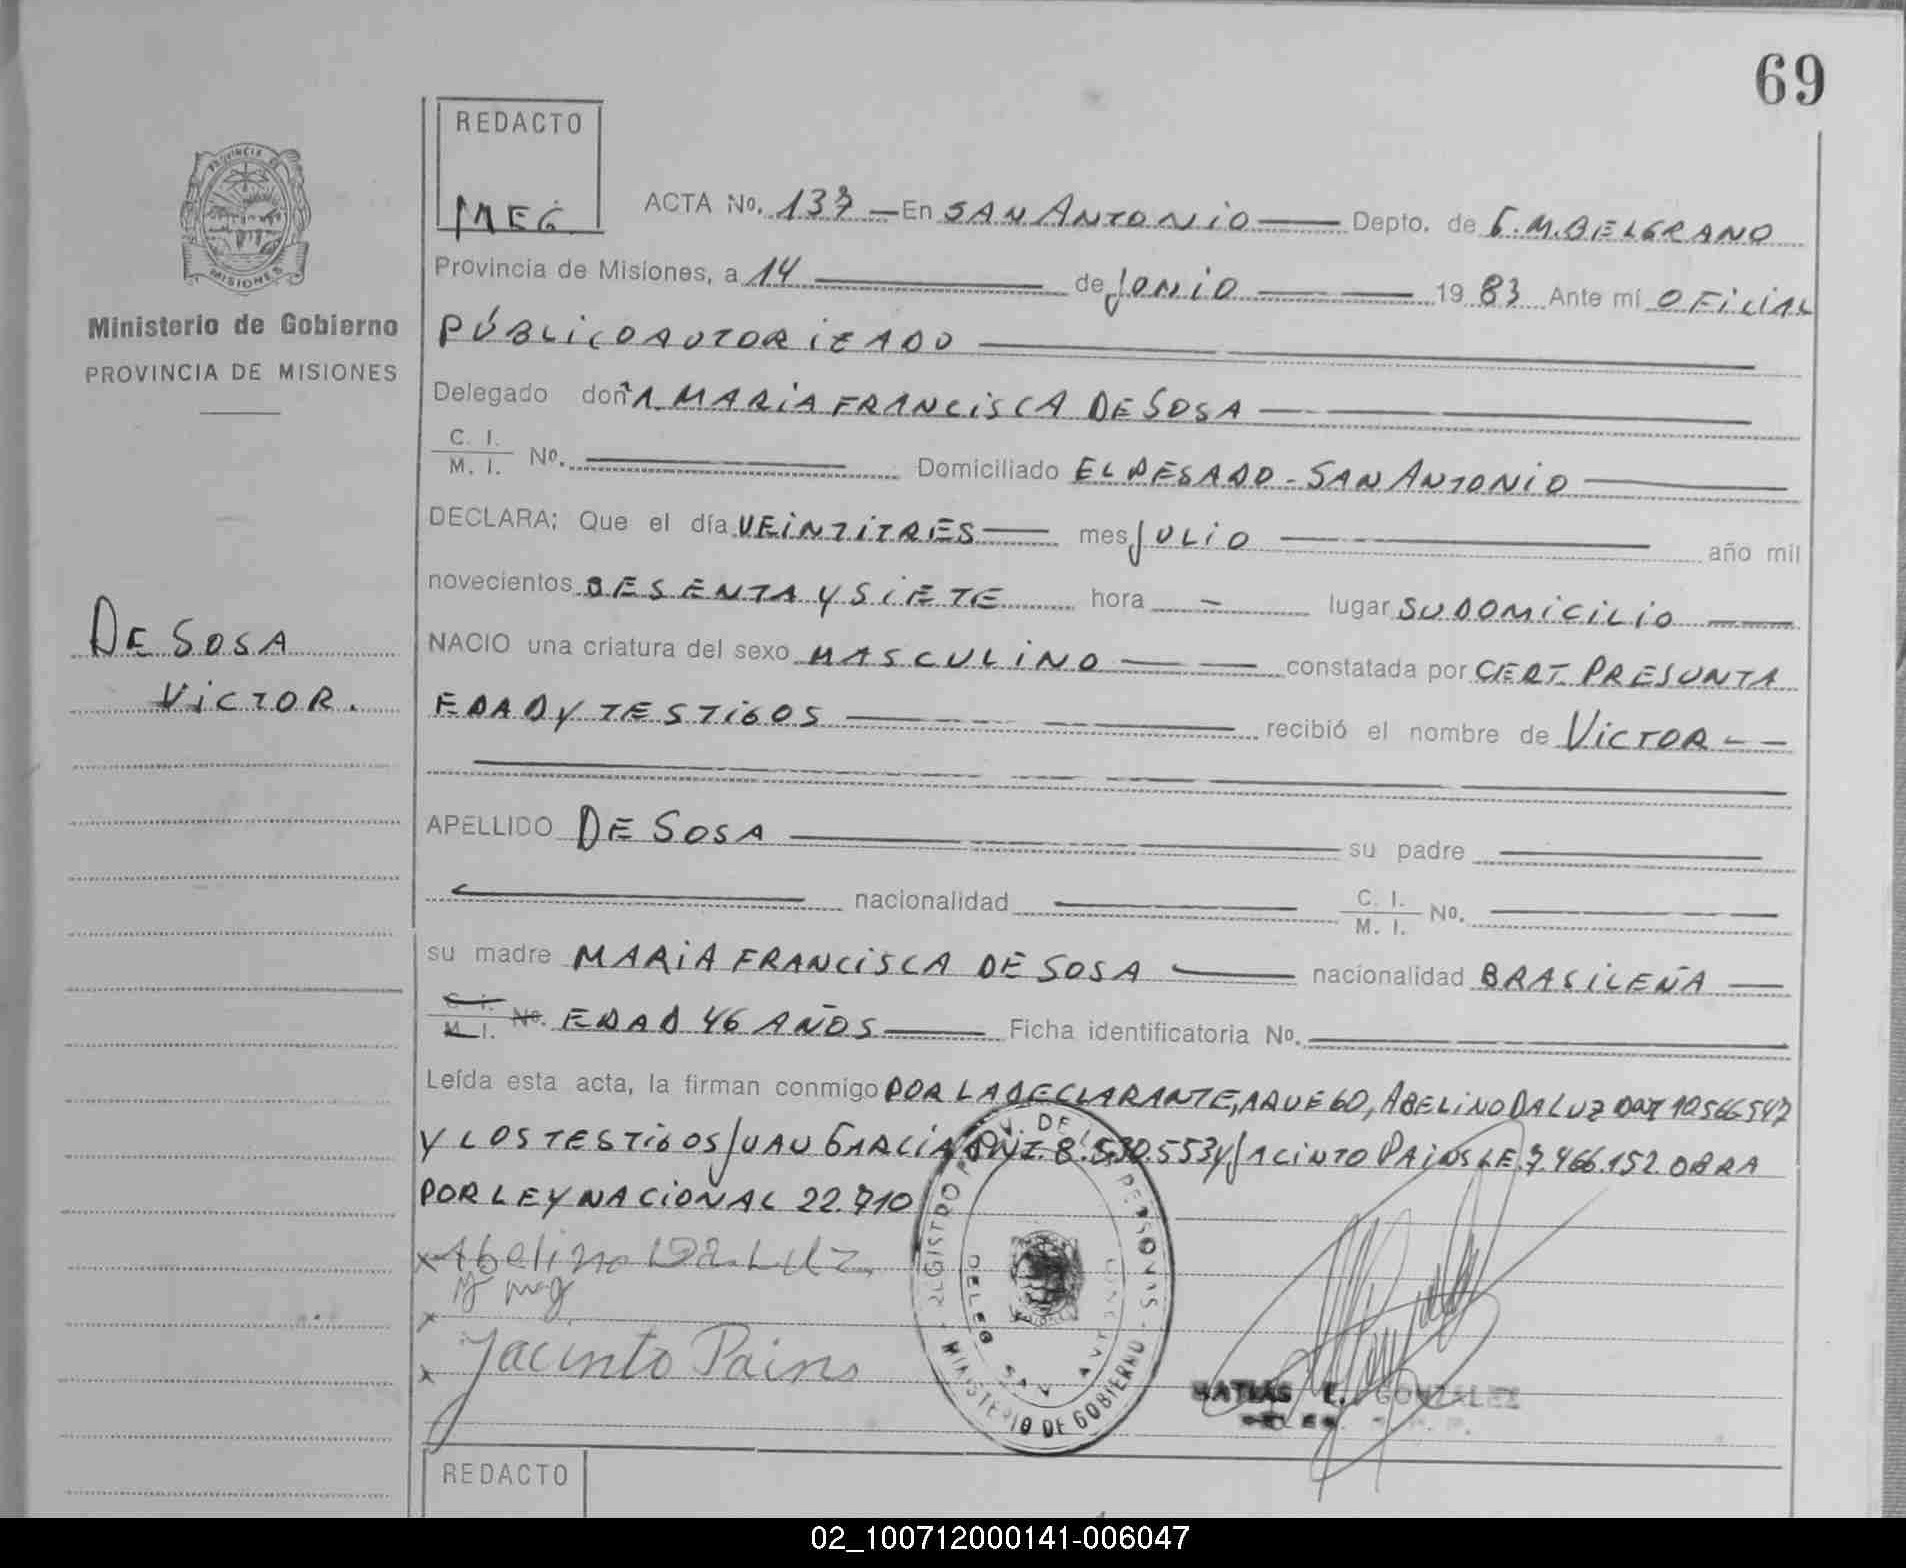 69
REDACTO
MEG
PROVINCIA DE
MISIONES
Ministerio de Gobierno
PROVINCIA DE MISIONES
ACTA No. 137 — En SAN ANTONIO — Depto. de G.M. BELGRANO
Provincia de Misiones, a 14 — de JUNIO — 1983 Ante mí OFICIAL
PÚBLICO AUTORIZADO —
Delegado doñA MARIA FRANCISCA DE SOSA —
C. I. / M. I. No. — Domiciliado EL PESADO - SAN ANTONIO —
DECLARA: Que el día VEINTITRES — mes JULIO — año mil
novecientos SESENTA Y SIETE hora — lugar SU DOMICILIO —
NACIO una criatura del sexo MASCULINO — constatada por CERT. PRESUNTA
EDAD Y TESTIGOS — recibió el nombre de VICTOR —
DE SOSA
VICTOR.
APELLIDO DE SOSA — su padre —
— nacionalidad — C. I. / M. I. No. —
su madre MARIA FRANCISCA DE SOSA — nacionalidad BRASILEÑA —
C. I. / M. I. No. EDAD 46 AÑOS — Ficha identificatoria No. —
Leída esta acta, la firman conmigo POR LA DECLARANTE, A RUEGO, ABELINO DA LUZ DNI 10566547
Y LOS TESTIGOS JUAN GARCIA DNI. 8.530.553 Y JACINTO PAINS LE. 7.466.152 OBRA
POR LEY NACIONAL 22.710
x Abelino Da Luz
x
x Jacinto Pains
REGISTRO PROV. DE LAS PERSONAS
MINISTERIO DE GOBIERNO
MATIAS E. GONZALEZ
REDACTO
02_100712000141-006047